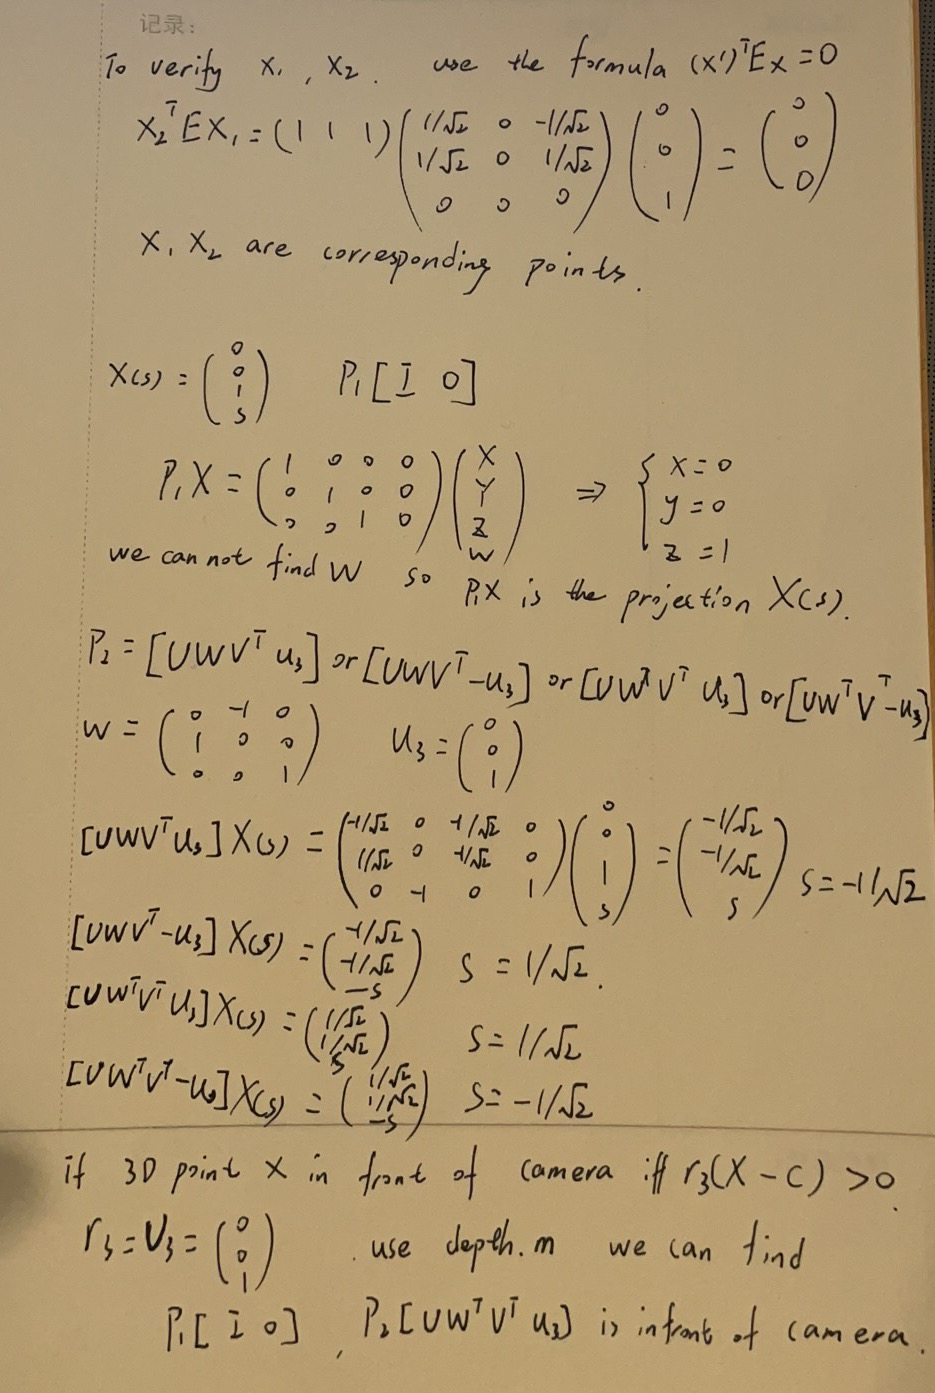 记录:
To verify x₁, x₂. use the formula (x')ᵀEx=0
x₂ᵀEx₁=(1 1 1)(1/√2 0 -1/√2; 1/√2 0 1/√2; 0 0 0)(0; 0; 1)=(0; 0; 0)
x₁ x₂ are corresponding points.
X(s)=(0; 0; 1; s) P₁[I 0]
P₁X=(1 0 0 0; 0 1 0 0; 0 0 1 0)(X; Y; Z; W) ⇒ {x=0; y=0; z=1
we can not find W so P₁X is the projection X(s).
P₂=[UWVᵀ u₃] or [UWVᵀ -u₃] or [UWᵀVᵀ u₃] or [UWᵀVᵀ -u₃]
W=(0 -1 0; 1 0 0; 0 0 1) u₃=(0; 0; 1)
[UWVᵀ u₃] X(s)=(-1/√2 0 -1/√2 0; 1/√2 0 -1/√2 0; 0 -1 0 1)(0; 0; 1; s)=(-1/√2; -1/√2; s) s=-1/√2
[UWVᵀ -u₃] X(s)=(-1/√2; -1/√2; -s) s=1/√2.
[UWᵀVᵀ u₃] X(s)=(1/√2; 1/√2; s) s=1/√2
[UWᵀVᵀ -u₃] X(s)=(1/√2; 1/√2; -s) s=-1/√2
if 3D point X in front of camera iff r₃(X-C)>0.
r₃=U₃=(0; 0; 1) . use depth.m we can find
P₁[I 0], P₂[UWᵀVᵀ u₃] is infront of camera.